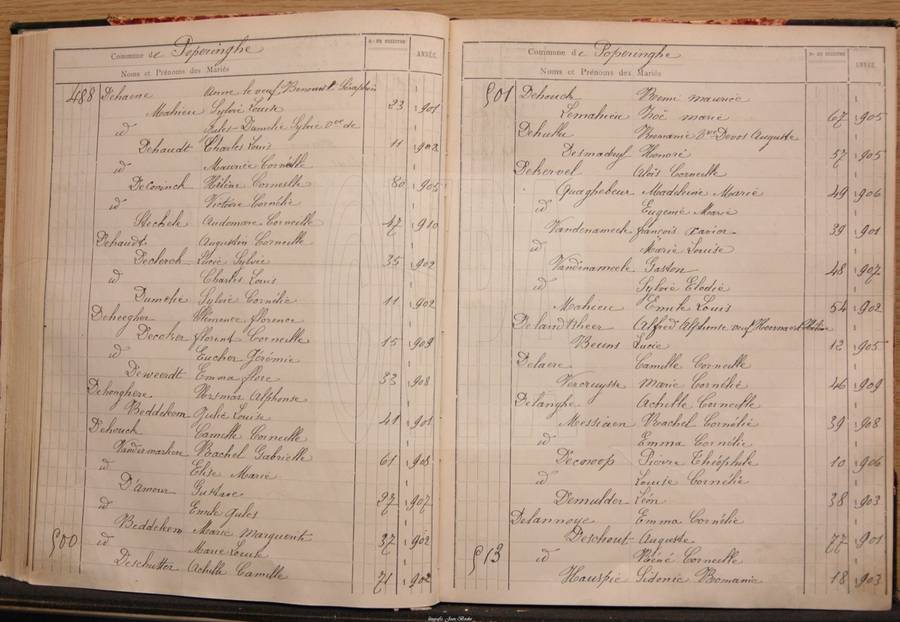 Commune de Poperinghe
N° DE REGISTRE ANNÉE
Noms et Prénoms des Mariés
488 Dehaene Anne le veuf Benoni Séraphin
Mahieu Sylvie Louise 23 1901
id Jules Dumelie Sylvie Vve de
Dehaudt Charles Louis 11 1902
id Maurice Cornélie
Deconinck Hélène Corneille 80 1905
id Victoire Cornélie
Stechele Audomare Corneille 47 1910
Dehaudt Augustin Corneille
Declerck Lucie Sylvie 35 1902
id Charles Louis
Dumelie Sylvie Cornélie 11 1902
Deheegher Clémence florence
Decocker florent Corneille 15 1909
id Eucher Jérémie
Deweerdt Emma flore 33 1908
Dehonghere Ursmar Alphonse
Beddeleem Julie Louise 41 1901
Dehouck Camille Corneille
Vandermarliere Rachel Gabrielle 61 1908
id Elise Marie
D'amour Gustave 27 1907
id Emile Jules
Beddeleem Marie Marguerite 37 1902
500 id Marie Louise
Deschutter Achille Camille 71 1902
Commune de Poperinghe
N° DE REGISTRE ANNÉE
Noms et Prénoms des Mariés
501 Dehouck Remi maurice
Lemahieu Zoé marie 67 1905
Dehullu Romanie Vve Devos Auguste
Desmadryl Honoré 57 1905
Dekervel Aloïs Corneille
Quaghebeur Madeleine Marie 49 1906
id Eugenie Marie
Vandenameele françois xavier 39 1901
id Marie Louise
Vandenameele Gaston 48 1907
id Sylvie Elodie
Mahieu Emile Louis 54 1902
Delaindtsheer Alfred Alphonse veuf
Beuns Lucie 12 1905
Delaere Camille Corneille
Vercruysse Marie Cornélie 46 1909
Delanghe Achille Corneille
Messiaen Rachel Cornélie 39 1908
id Emma Cornélie
Decroop Pierre Théophile 10 1906
id Louise Cornélie
Demulder Léon 38 1903
Delannoye Emma Cornélie
Deschout Auguste 77 1901
513 id Réné Corneille
Hauspie Sidonie Romanie 18 1903